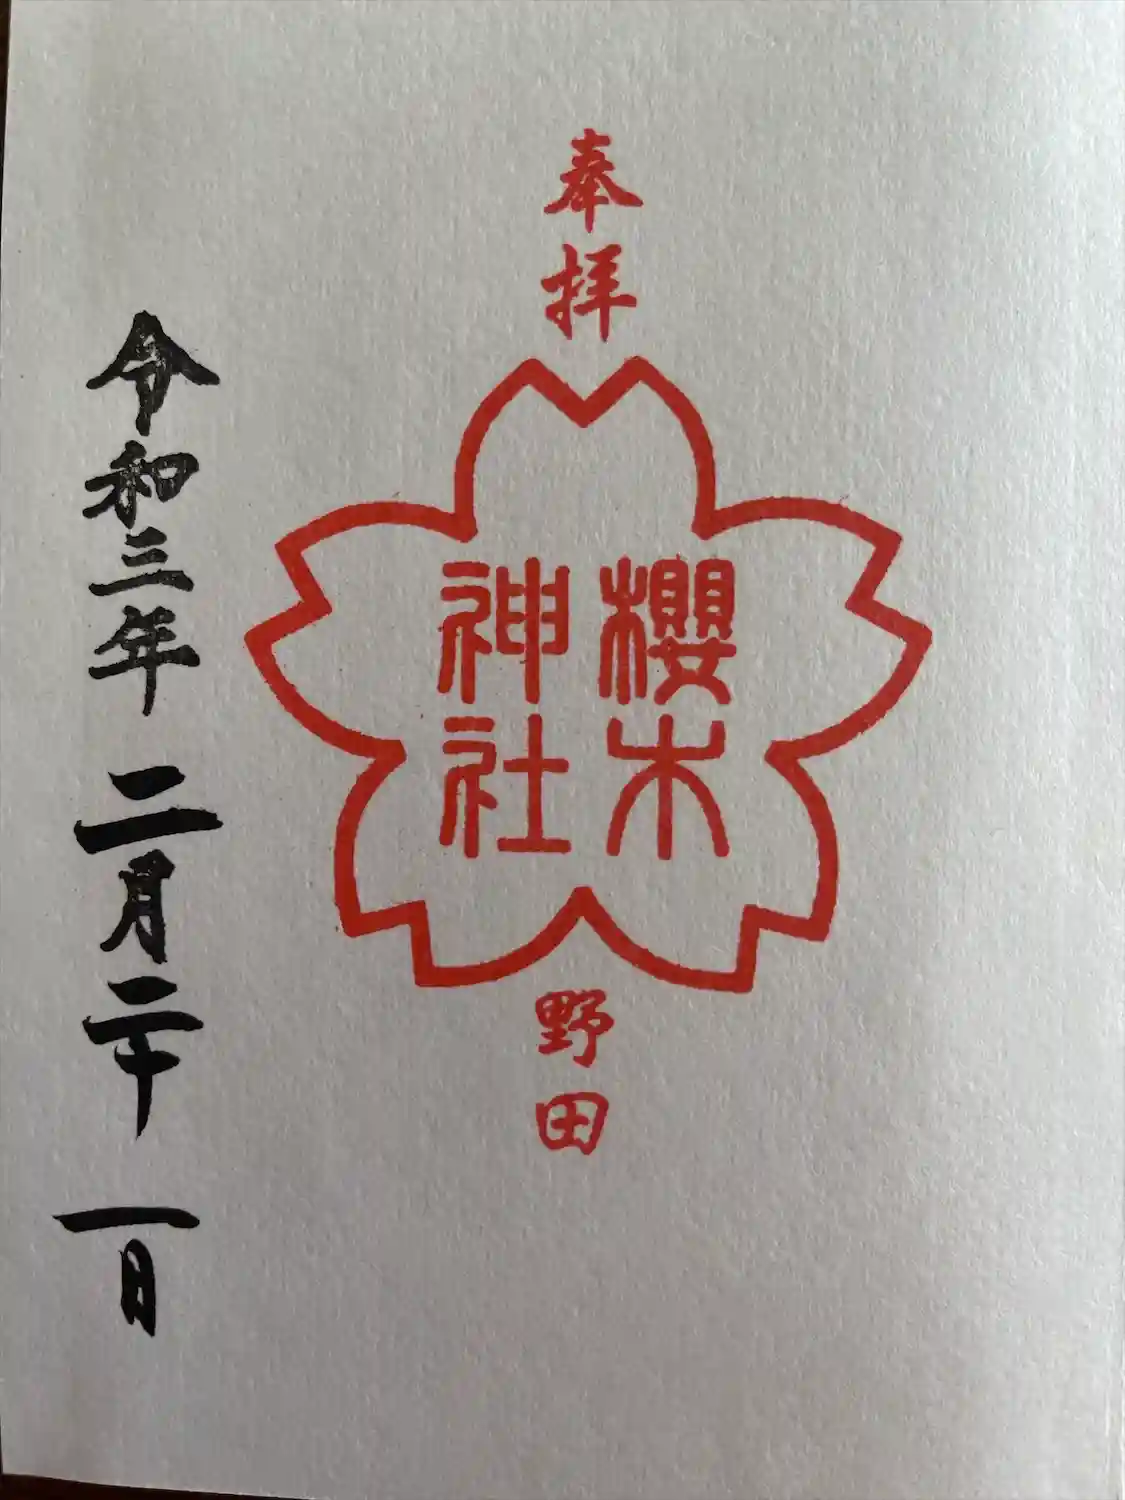 奉拝
櫻木
神社
野田
令和三年 二月二十一日